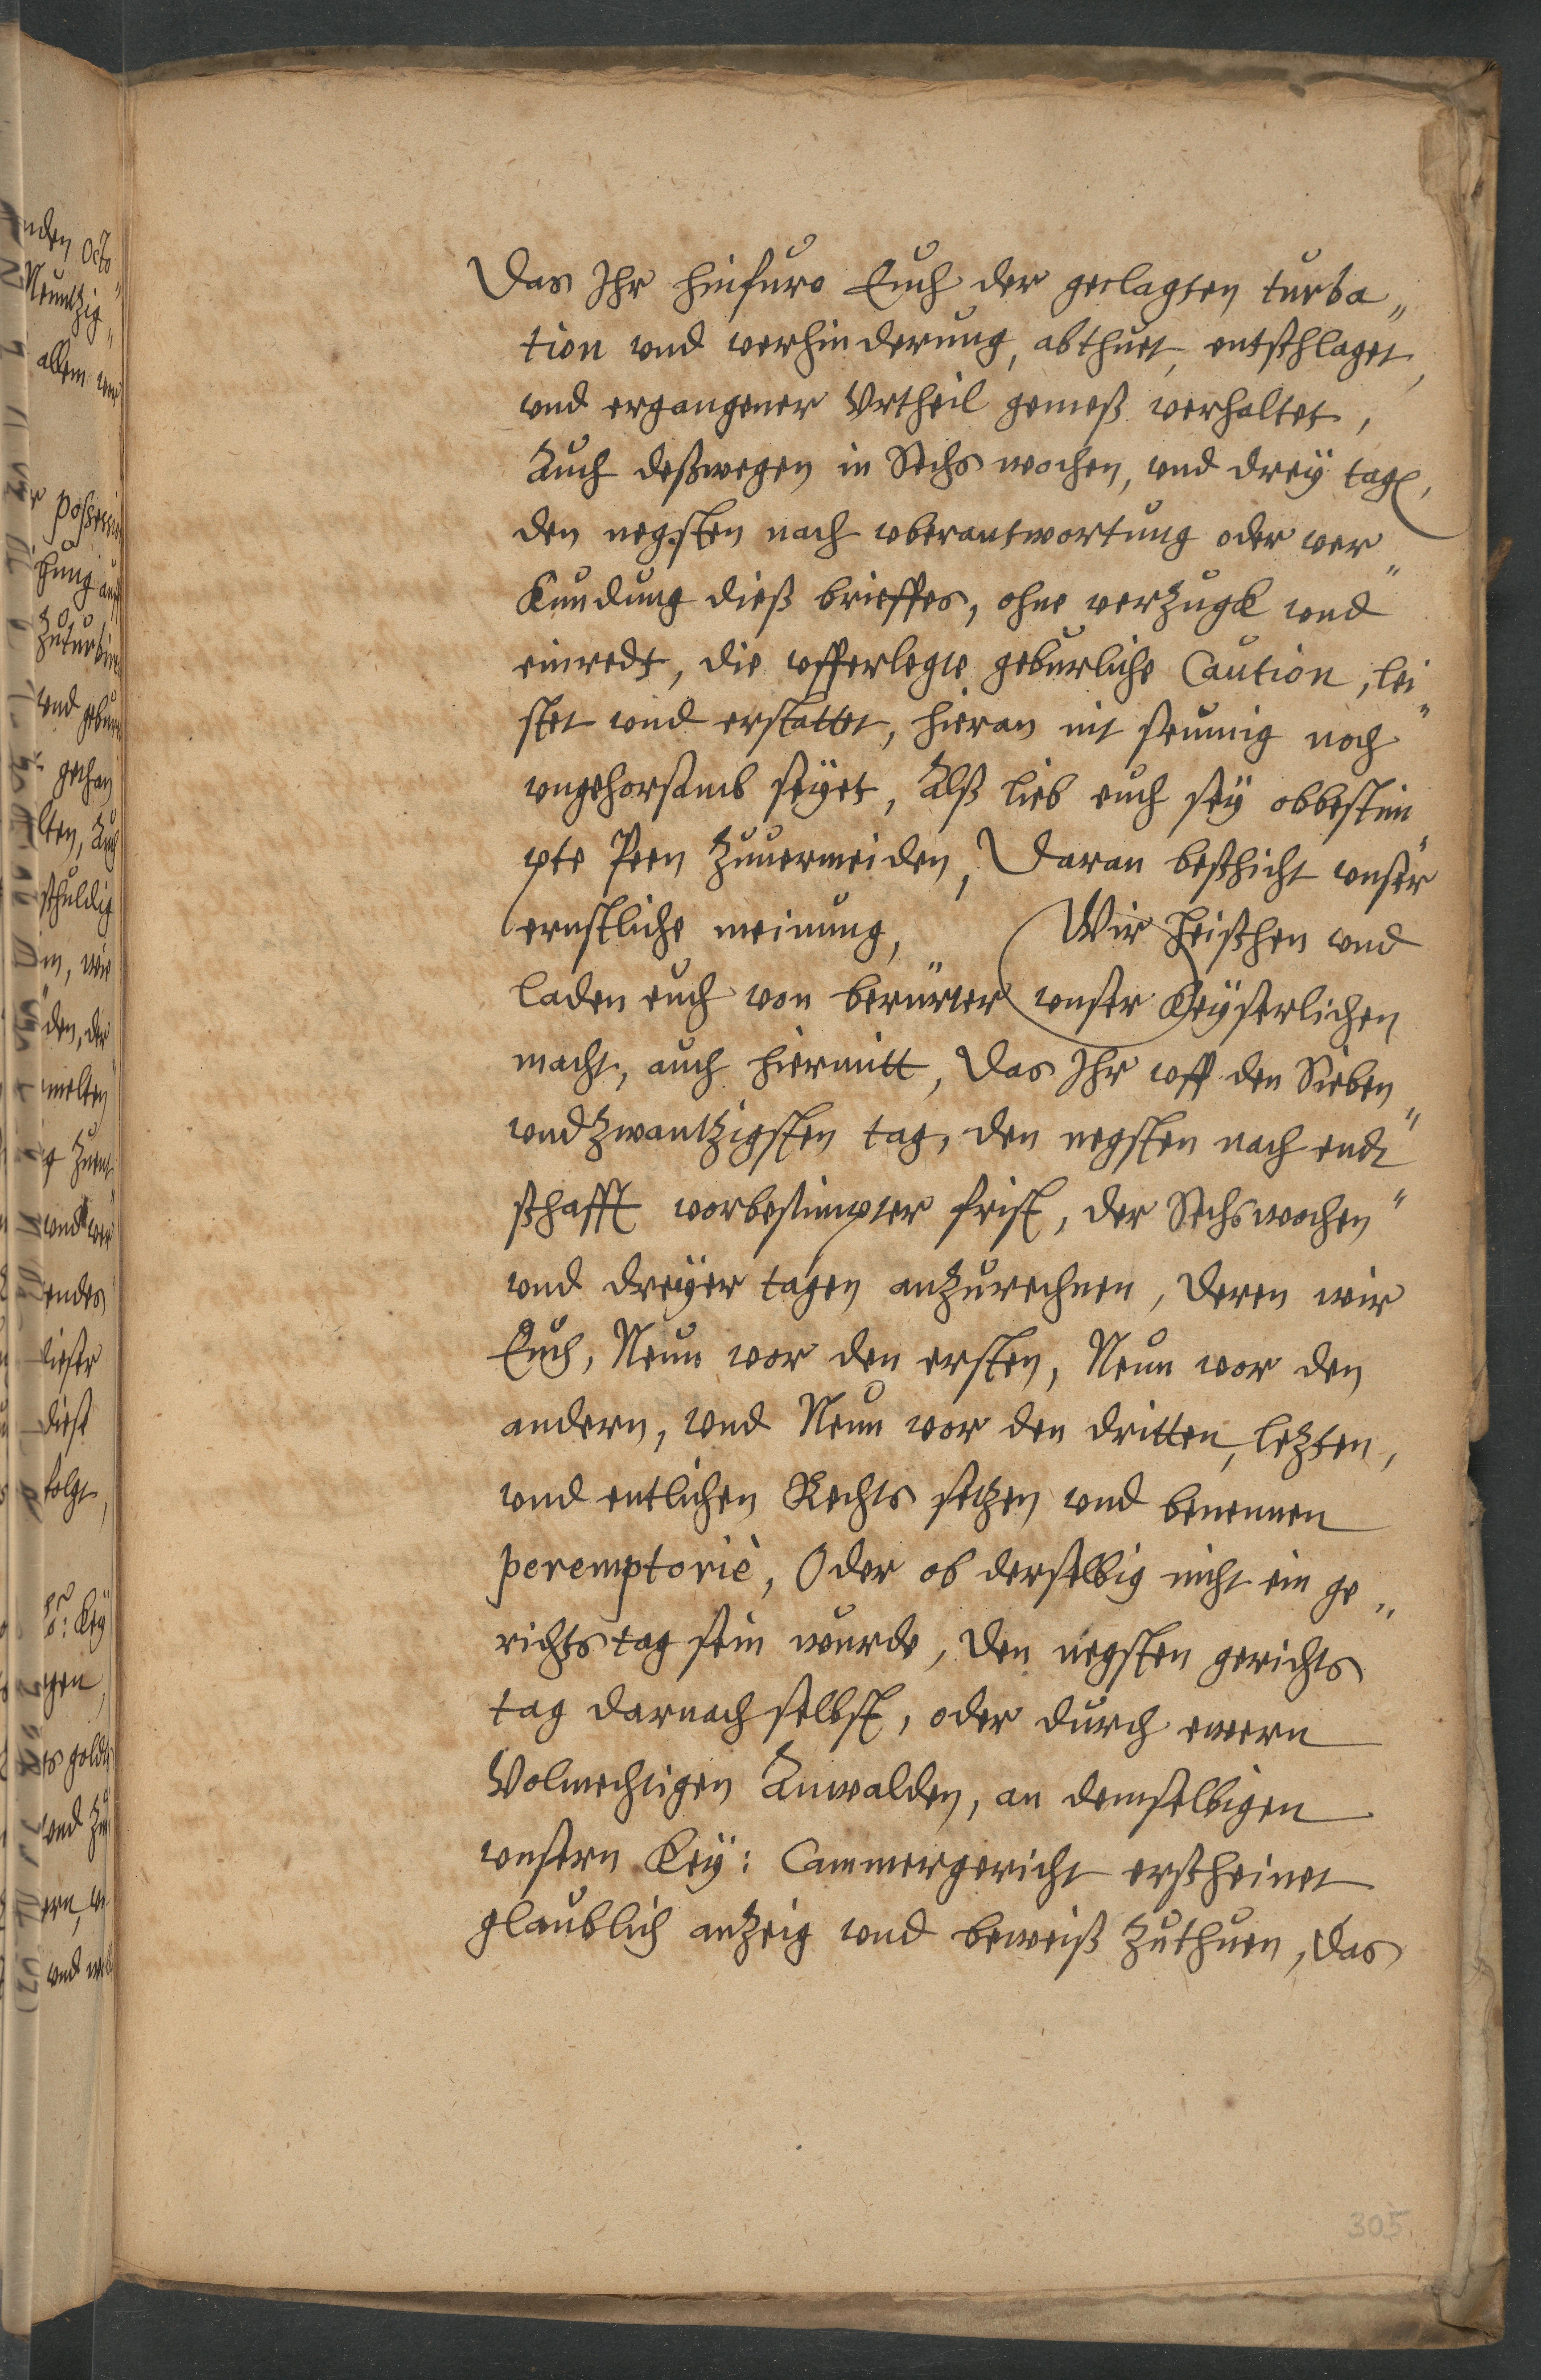 Das Ihr hinfuro Euch der geclagten turba„
tion vnd verhinderung, abthuet, entschlaget,
vnd ergangener Vrtheil gemeß verhaltet,
Auch deßwegen in Sechs wochen, vnd dreÿ tagen,
den negsten nach vberantwortung oder ver„
kundung dieß brieffes, ohne verzugk vnd
einredt, die vfferlegte geburliche Caution, lei„
stet vnd erstattet, hieran nit seumig noch
vngehorsamb seÿet, Alß lieb euch seÿ obbestim„
pte Peen zuuermeiden, Daran beschicht vnser
ernstliche meinung, Wir heischen vnd
laden euch von berürter vnser Keÿserlichen
macht, auch hiermitt, Das Ihr vff den Sieben„
vndzwantzigsten tag, den negsten nach endt„
schafft vorbestimpter frist, der Sechs wochen
vnd dreÿer tagen anzurechnen, deren wir
Euch, Neun vor den ersten, Neun vor den
andern, vnd Neun vor den dritten, letzten,
vnd entlichen Rechts setzen vnd benennen
peremptoriè, Oder ob derselbig nicht ein ge„
richts tag sein wurde, den negsten gerichts
tag darnach selbst, oder durch ewern
Volmechtigen Anwalden, an demselbigen
vnsern Keÿ: Cammergericht erscheinet
glaublich anzeig vnd beweiß zuthuen, das
305
nden Octo„
Neuntzig„
allem
possessi
hung
zuturbi
vnd gebu
lten, Auch
schuldig
m, wie
den, der
melten
vnd ver
endes
dieser
diese
folgt,
Keÿ
gen,
ts goldt
vnd
ern,
vnd